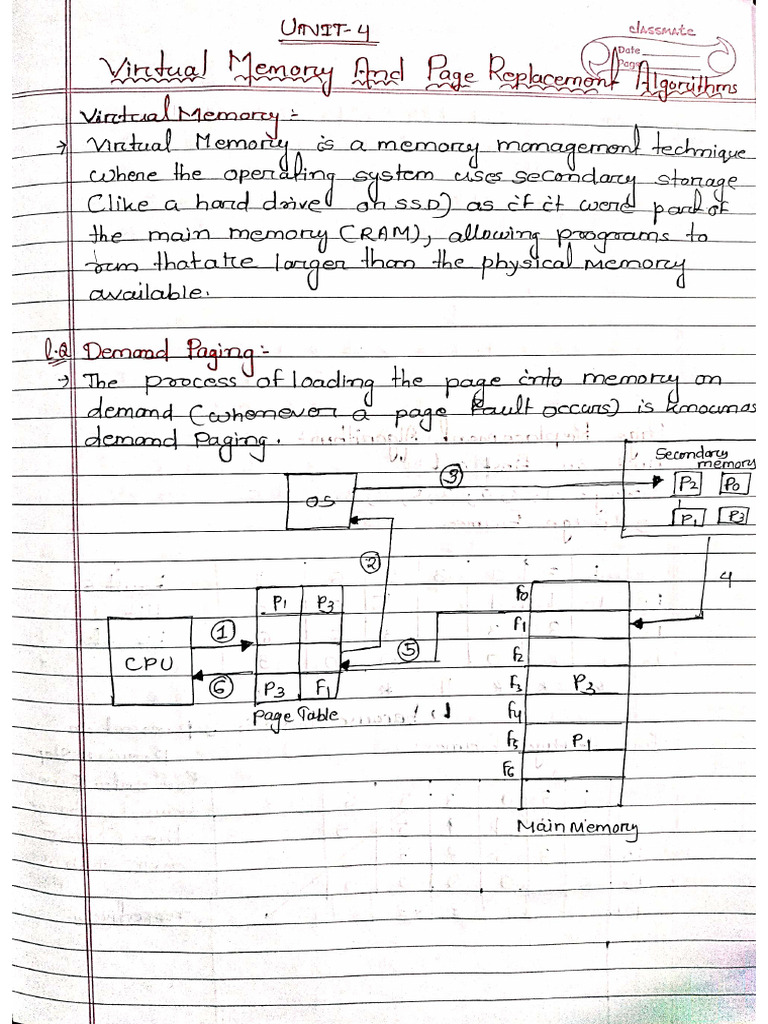 UNIT-4
classmate
Date
Page
Virtual Memory And Page Replacement Algorithms
Virtual Memory :-
→ Virtual Memory is a memory management technique
where the operating system uses secondary storage
(like a hard drive or SSD) as if it were part of
the main memory (RAM), allowing programs to
run that are larger than the physical memory
available.
Demand Paging :-
→ The process of loading the page into memory on
demand (whenever a page fault occurs) is known as
demand Paging.
Secondary
memory
OS
3
P2 P0
P1 P3
2
4
P1 P3
CPU
1
5
6
P3 F1
Page Table
f0
f1
f2
f3 P3
f4
f5 P1
f6
Main Memory